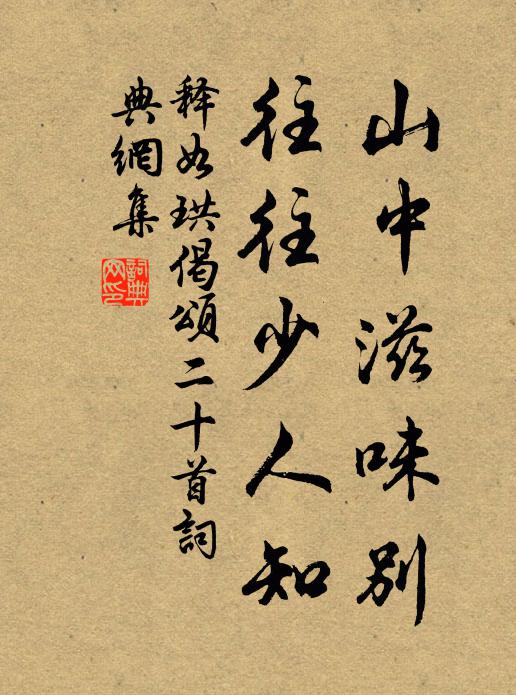 山中滋味別
往往少人知
释如珙偈頌二十首詞
典網集
詞典
网印